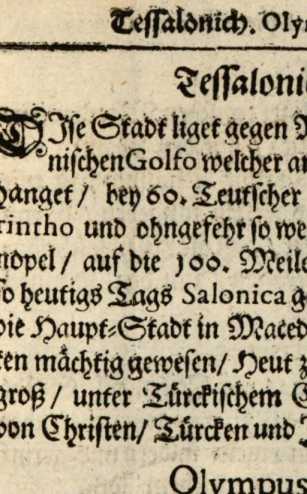 Tessalonich. Oly
Tessaloni
DJse Stadt liget gegen
nischen Golfo welcher
hanget / bey 60. Teutscher
rintho und ohngefehr so we
nopel / auf die 100. Meile
so heutigs Tags Salonica g
die Haupt-Stadt in Maced
ten mächtig gewesen / Heut z
groß / unter Türckischem
von Christen / Türcken und
Olympus